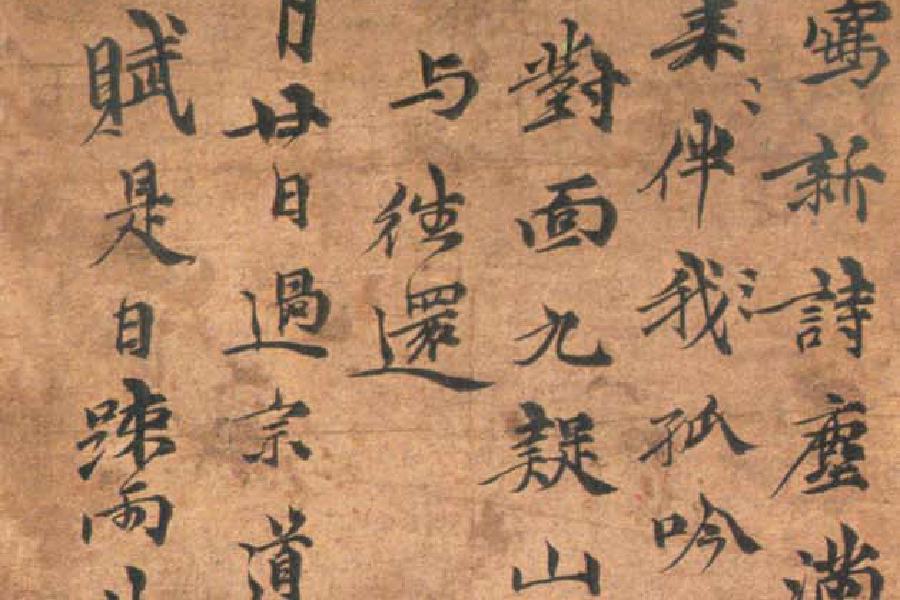 寫新詩塵滿
來〻伴我〻孤吟
對面九疑山
与往還
月廿日過宗道
賦是日踈雨